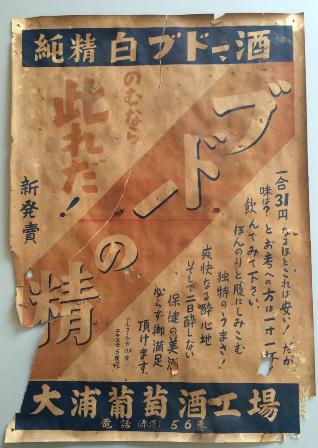 純精白ブドー酒
のむなら
此れだ！
ブドーの精
新発賣
一合31円 なるほどこれは安い！だが
味は？とお考への方は一寸一杯！
飲んでみて下さい。
ほんのりと腹にしみこむ
独特のうまさ！
爽快なる酔心地
そして二日酔しない
保健の美酒
必らず御満足
頂けます。
大浦葡萄酒工場
電話 56番